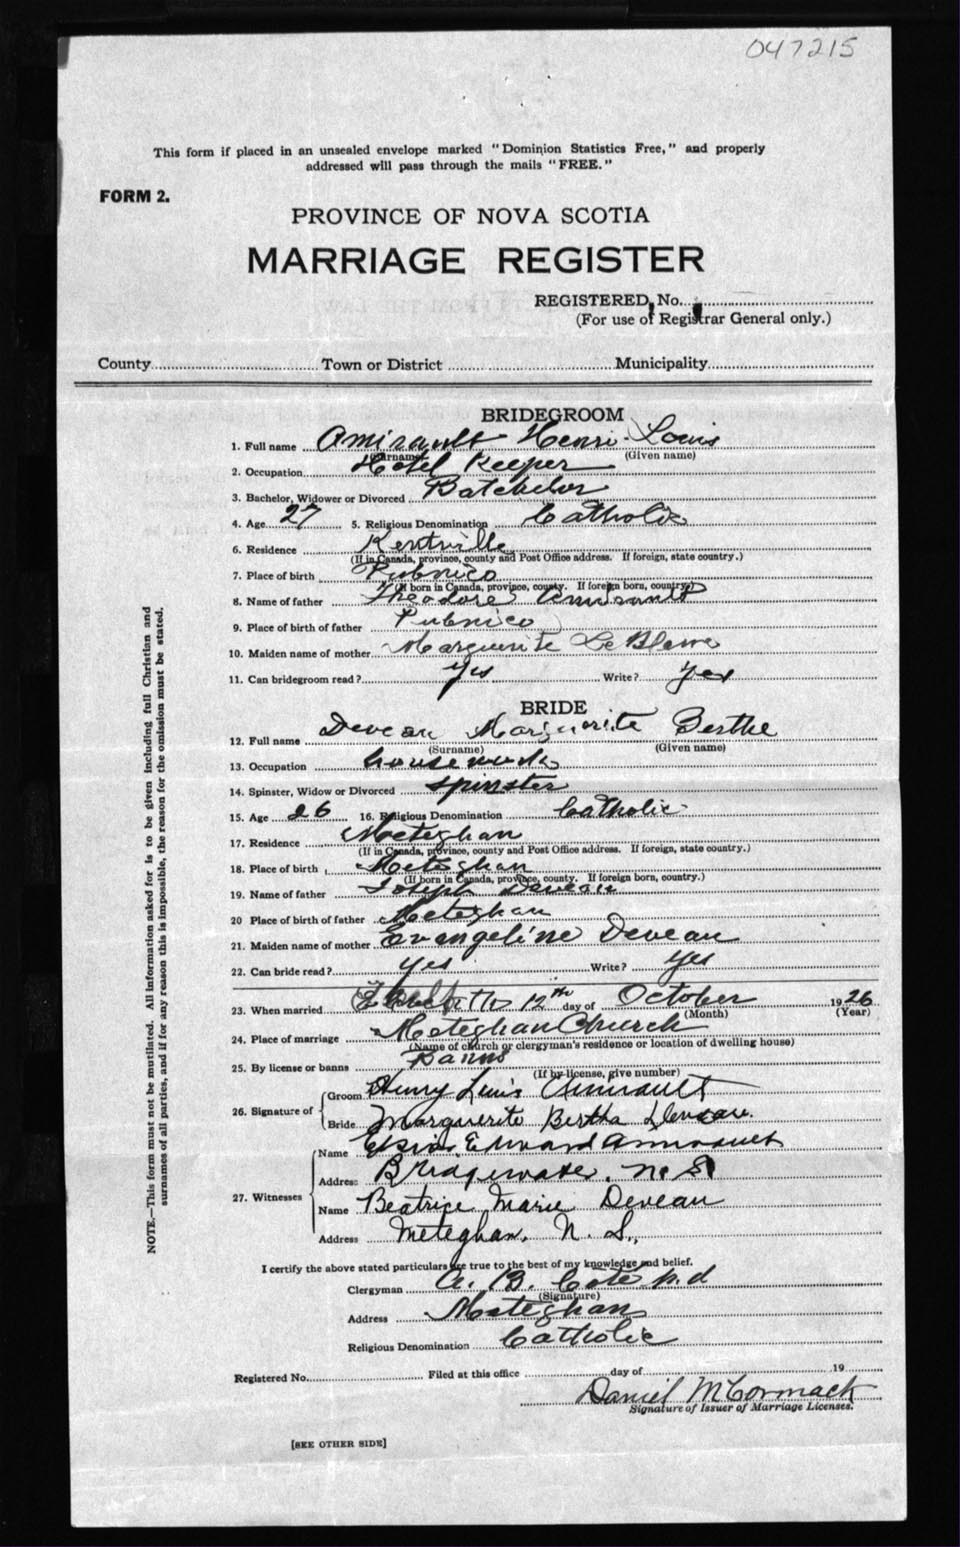 047215
This form if placed in an unsealed envelope marked "Dominion Statistics Free," and properly
addressed will pass through the mails "FREE."
FORM 2.
PROVINCE OF NOVA SCOTIA
MARRIAGE REGISTER
REGISTERED, No.
(For use of Registrar General only.)
County Town or District Municipality
BRIDEGROOM
1. Full name Amirault Henri Louis
(Surname) (Given name)
2. Occupation Hotel Keeper
3. Bachelor, Widower or Divorced Batchelor
4. Age 27 5. Religious Denomination Catholic
6. Residence Kentville
(If in Canada, province, county and Post Office address. If foreign, state country.)
7. Place of birth Pubnico
(If born in Canada, province, county. If foreign born, country)
8. Name of father Theodore Amirault
9. Place of birth of father Pubnico
10. Maiden name of mother Marguerite Le Blanc
11. Can bridegroom read? Yes Write? Yes
BRIDE
12. Full name Deveau Marguerite Berthe
(Surname) (Given name)
13. Occupation housework
14. Spinster, Widow or Divorced Spinster
15. Age 26 16. Religious Denomination Catholic
17. Residence Meteghan
(If in Canada, province, county and Post Office address. If foreign, state country.)
18. Place of birth Meteghan
(If born in Canada, province, county. If foreign born, country.)
19. Name of father Joseph Deveau
20 Place of birth of father Meteghan
21. Maiden name of mother Evangeline Deveau
22. Can bride read? yes Write? yes
23. When married the 12th day of October 1926
(Month) (Year)
24. Place of marriage Meteghan Church
(Name of church or clergyman's residence or location of dwelling house)
25. By license or banns Banns
(If by license, give number)
26. Signature of Groom Henry Louis Amirault
Bride Marguerite Bertha Deveau.
27. Witnesses Name Edward Amirault
Address Bridgewater, N. S.
Name Beatrice Marie Deveau
Address Meteghan, N. S.,
I certify the above stated particulars are true to the best of my knowledge and belief.
Clergyman A. B. Cote p.d
(Signature)
Address Meteghan
Religious Denomination Catholic
Registered No. Filed at this office day of 19
Daniel McCormack
Signature of Issuer of Marriage Licenses.
[SEE OTHER SIDE]
NOTE.—This form must not be mutilated. All information asked for is to be given including full Christian and
surnames of all parties, and if for any reason this is impossible, the reason for the omission must be stated.